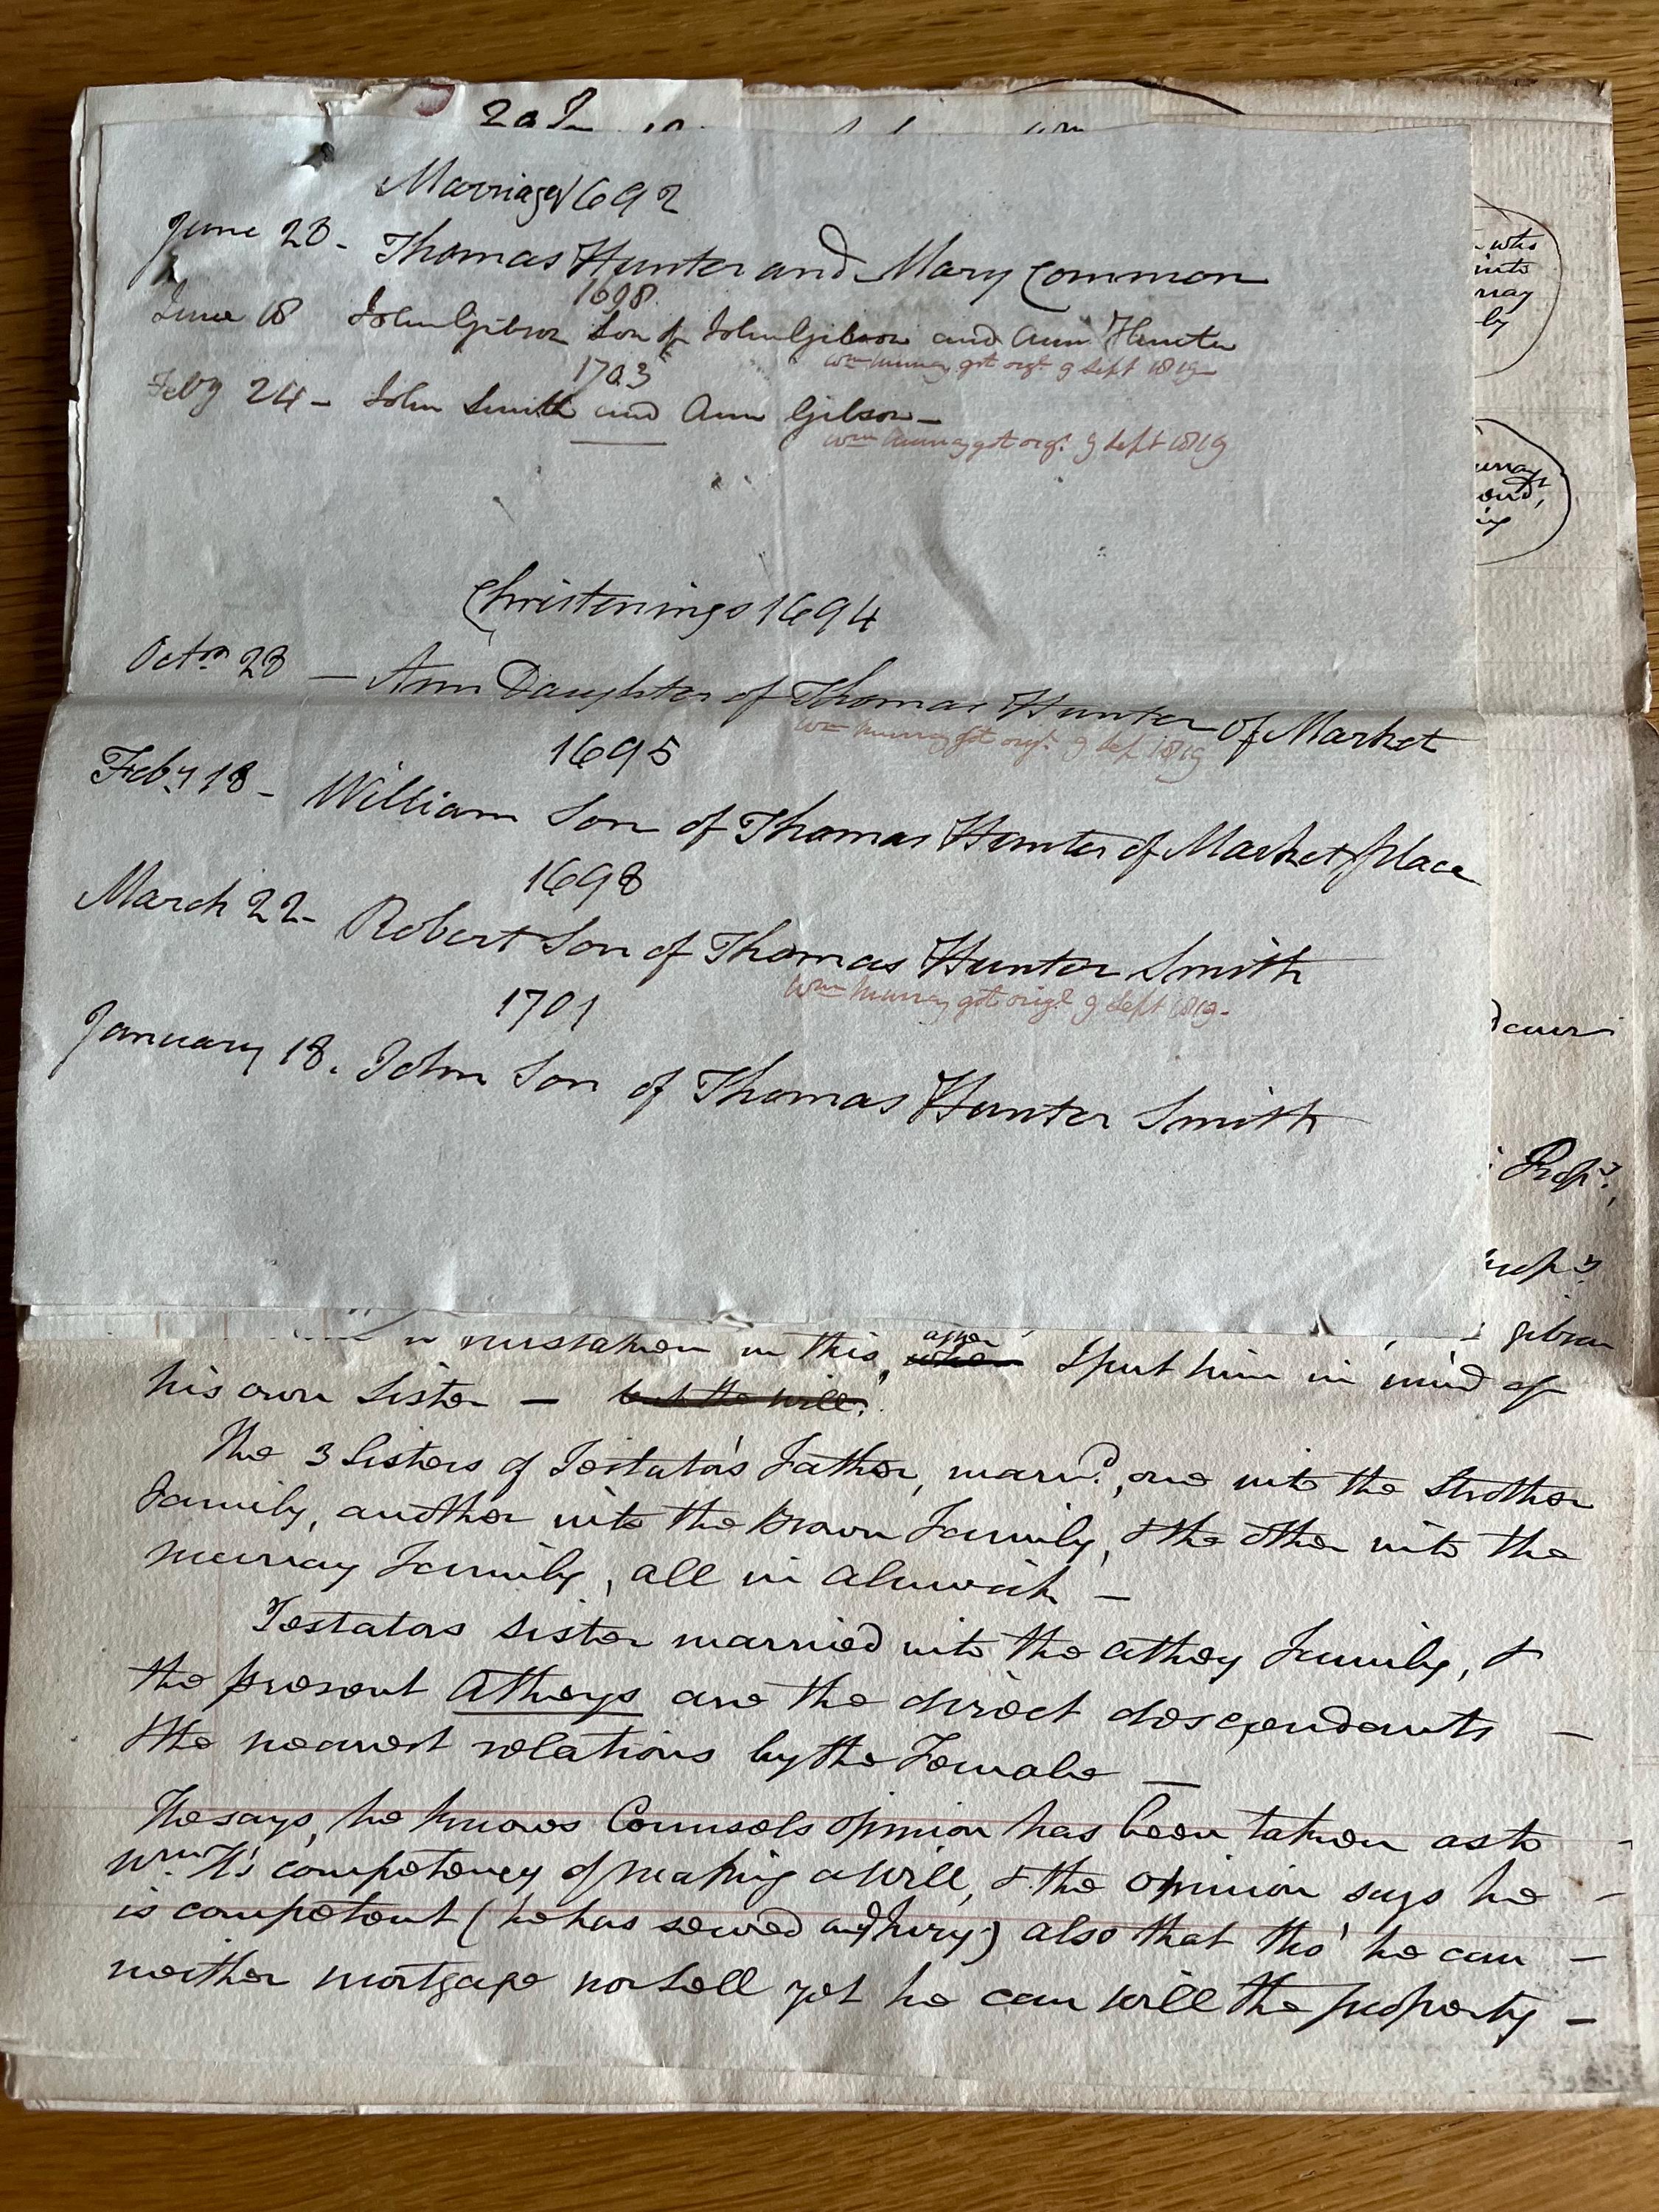 Marriages 1692
June 28 - Thomas Hunter and Mary Common
1698
June 18 John Gibson Son of John Gibson and Ann Hunter
Wm Murray got orig! 9 Sept 1819
1703
Feby 24 - John Smith and Ann Gibson -
Wm Murray got orig! 9 Sept 1819
Christenings 1694
Octr 28 - Ann Daughter of Thomas Hunter of Market
Wm Murray got orig! 9 Sep 1819
1695
Feby 18 - William Son of Thomas Hunter of Market place
1698
March 22 - Robert Son of Thomas Hunter Smith
Wm Murray got orig! 9 Sept 1819 -
1701
January 18. John Son of Thomas Hunter Smith
who
into
rray
by
urray
ond,
Prop.y,
rop.y
gibson
mistaken in this, when I put him in mind of
his own Sister - but the will.
The 3 Sisters of Testator's Father, marrd., one into the Strother
Family, another into the Brown Family, & the other into the
Murray Family, all in Alnwick -
Testators Sister married into the Athey Family, &
the present Atheys are the direct descendants -
the nearest relations by the Female -
He says, he knows Counsels opinion has been taken as to -
Wm H's competency of making a Will, & the opinion says he -
is competent (he has sewed ) also that tho' he can -
neither mortgage nor Sell yet he can Will the property -